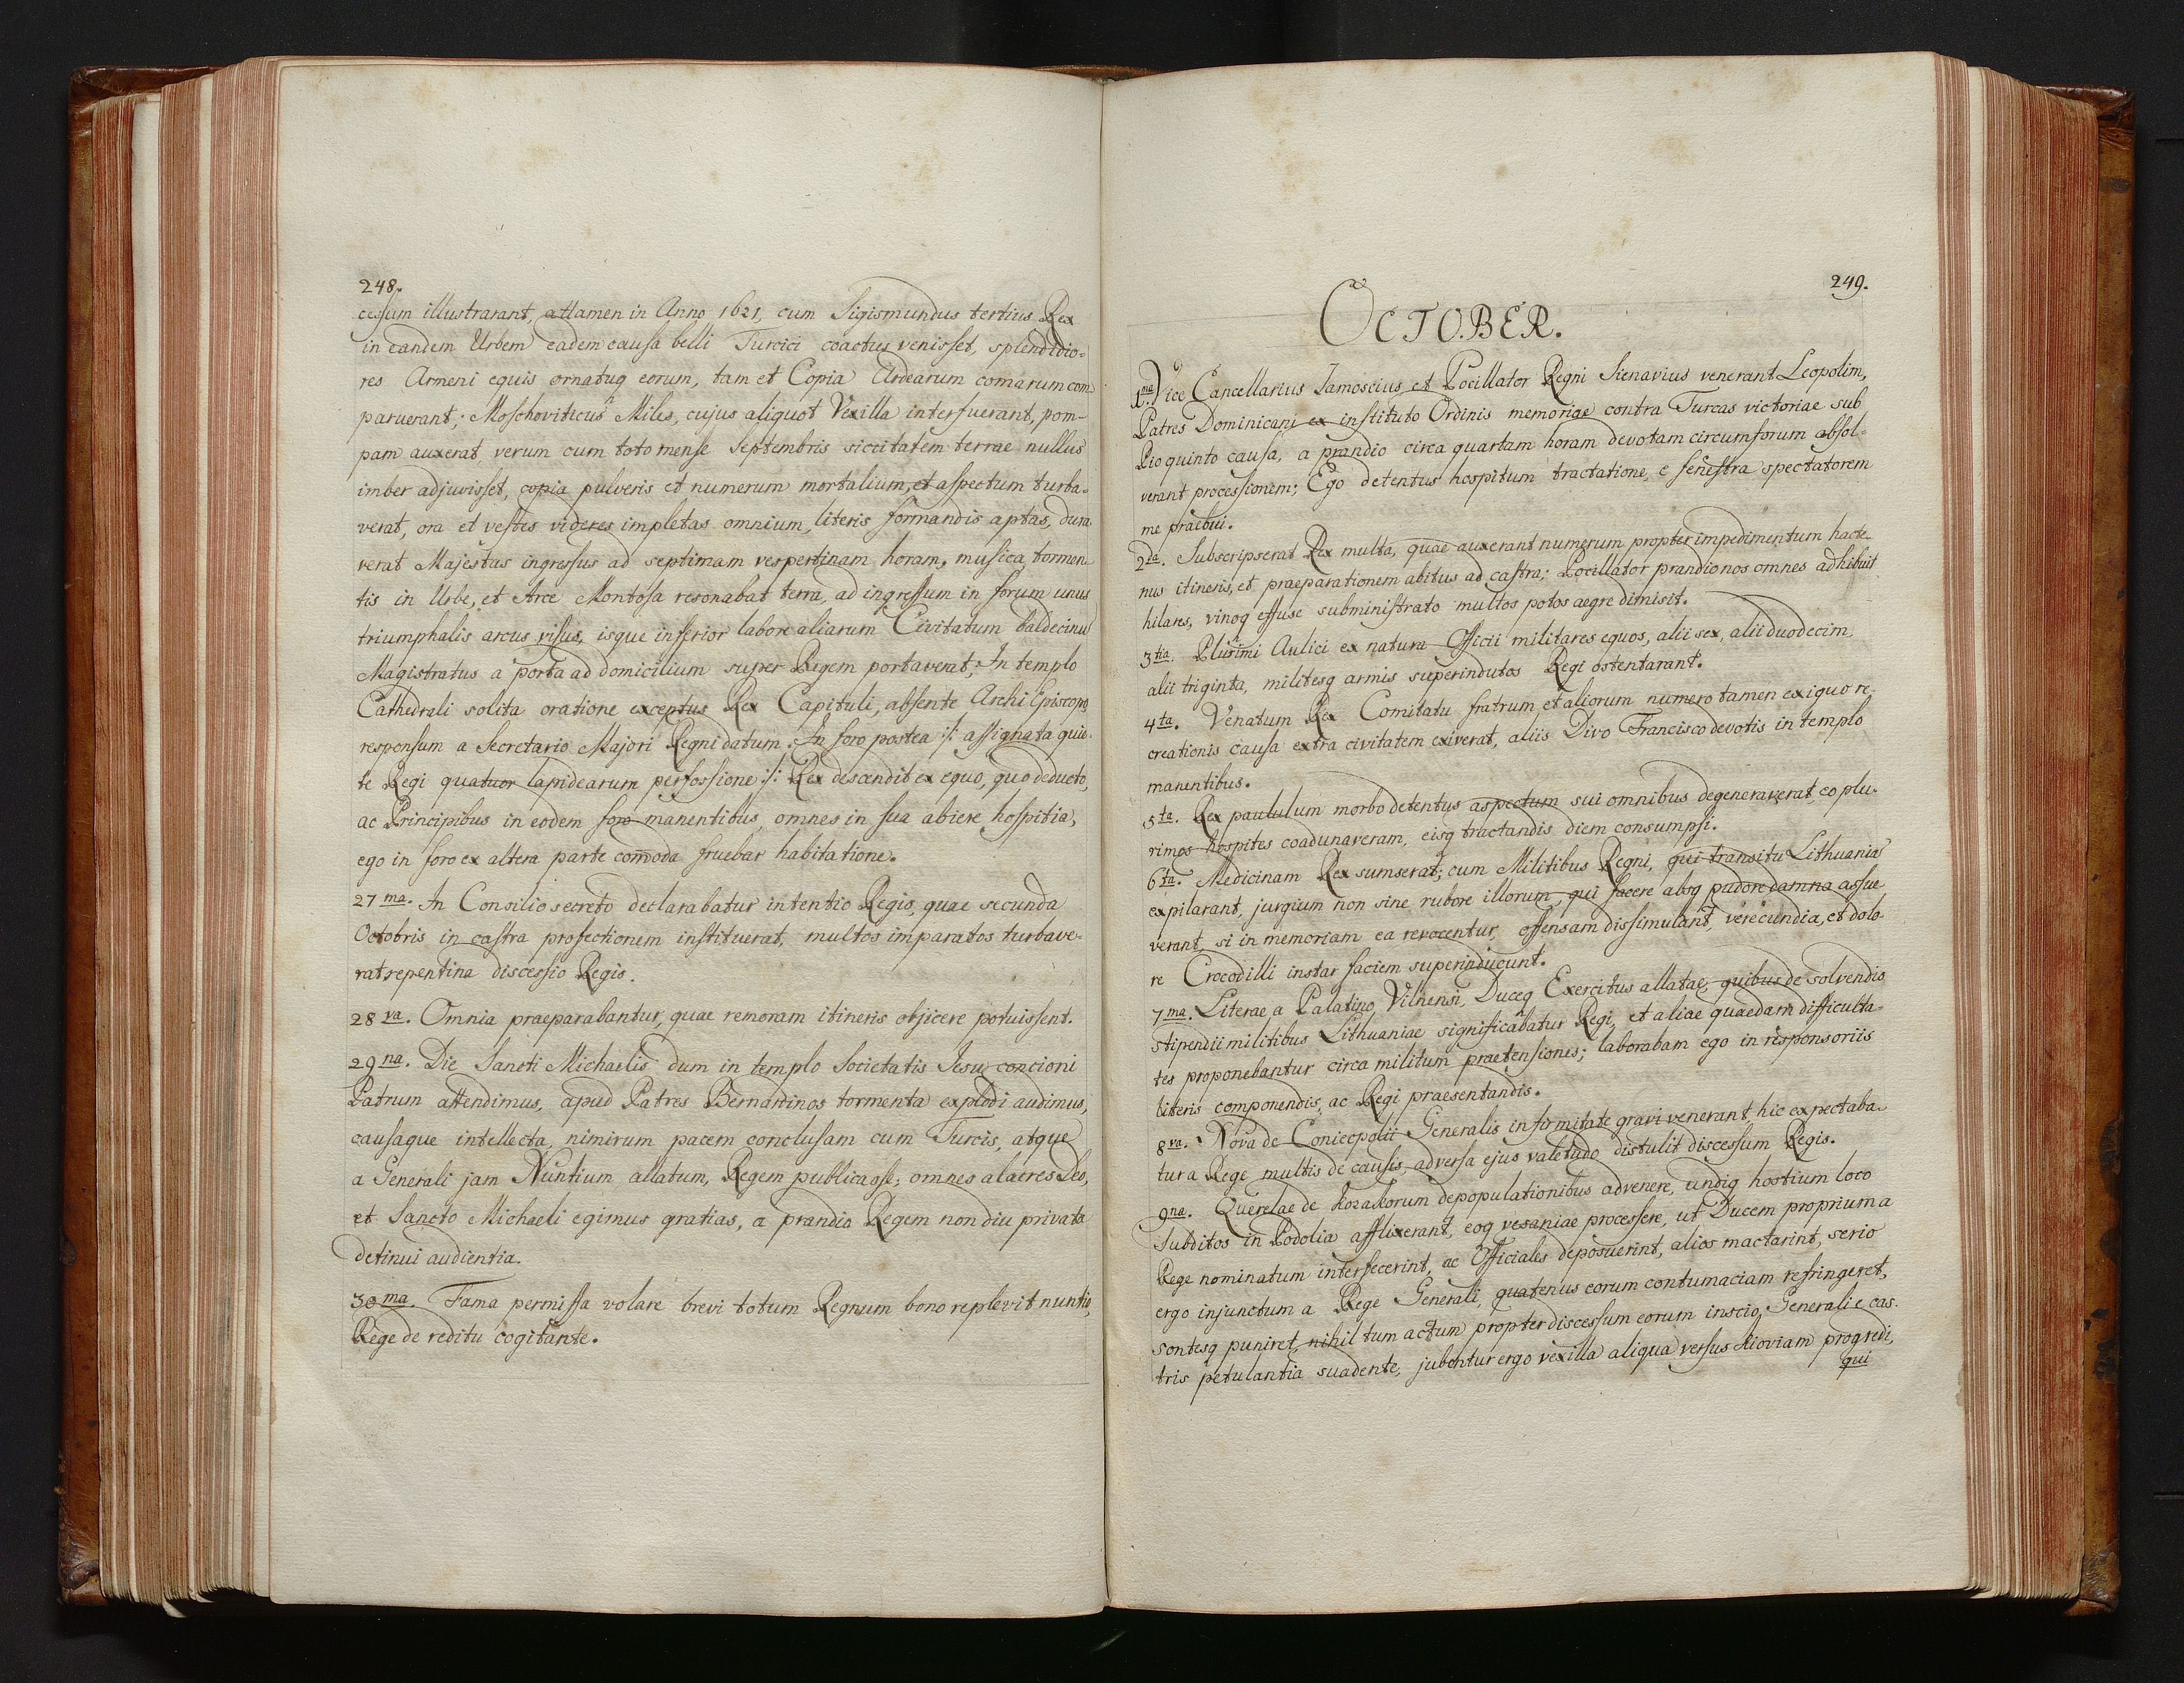 248.
cessum illustrarant, attamen in Anno 1621, cum Sigismundus tertius Rex
in eandem Urbem eadem causa belli Turcici coactus venisset, splendidio-
res Armeni equis ornatuq eorum, tam et Copia Ardearum comarum com
paruerant; Moschoviticus Miles, cujus aliquot Vexilla interfuerant, pom-
pam auxerat, verum cum toto mense Septembris siccitatem terrae nullus
imber adjuvisset, copia pulveris et numerum mortalium, et aspectum turba-
verat, ora et vestes videres impletas omnium, literis formandis aptas, dura
verat Majestas ingressus ad septimam vespertinam horam, musica tormen-
tis in Urbe, et Arce Montosa resonabat terra, ad ingressum in forum unus
triumphalis arcus visus, isque inferior labore aliarum Civitatum baldecinu
Magistratus a porta ad domicilium super Regem portaverat; In templo
Cathedrali solita oratione exceptus Rex Capituli, absente Archi Episcopo,
responsum a Secretario Majori Regni datum. In foro postea :/: assignata quie-
te Regi quatuor lapidearum perfossione :/: Rex descendit ex equo, quo deducto,
ac Principibus in eodem foro manentibus, omnes in sua abiere hospitia,
ego in foro ex altera parte com̄oda fruebar habitatione.
27ma. In Consilio secreto declarabatur intentio Regis, quae secunda
Octobris in castra profectionem instituerat, multos imparatos turbave-
rat repentina discessio Regis.
28va. Omnia praeparabantur, quae remoram itineris objicere potuissent.
29na. Die Sancti Michaelis dum in templo Societatis Jesu concioni
Patrum attendimus, apud Patres Bernardinos tormenta explodi audimus,
causaque intellecta, nimirum pacem conclusam cum Turcis, atque
a Generali jam Nuntium allatum, Regem publicasse; omnes alacres Deo,
et Sancto Michaeli egimus gratias, a prandio Regem non diu privata
detinui audientia.
30ma. Fama permissa volare brevi totum Regnum bono replevit nuntio,
Rege de reditu cogitante.
249.
OCTOBER.
1ma. Vice Cancellarius Zamoscius, et Pocillator Regni Sienavius venerant Leopolim,
Patres Dominicani ex instituto Ordinis memoriae contra Turcas victoriae sub
Pio quinto causa, a prandio circa quartam horam devotam circumforum absol-
verant processionem; Ego detentus hospitum tractatione, e fenestra spectatorem
me praebui.
2da. Subscripserat Rex multa, quae auxerant numerum propter impedimentum hacte-
nus itineris, et praeparationem abitus ad castra; Pocillator prandio nos omnes adhibuit
hilares, vinoq effuse subministrato multos potos aegre dimisit.
3tia. Plurimi Aulici ex natura Officii militares equos, alii sex, alii duodecim
alii triginta, militesq armis superindutos Regi ostentarant.
4ta. Venatum Rex Comitatu fratrum, et aliorum numero tamen exiguo re-
creationis causa extra civitatem exiverat, aliis Divo Francisco devotis in templo
manentibus.
5ta. Rex paululum morbo detentus aspectum sui omnibus degeneraverat, eo plu-
rimos hospites coadunaveram, eisq tractandis diem consumpsi.
6ta. Medicinam Rex sumserat; cum Militibus Regni, qui transitu Lithuaniae
expilarant, jurgium non sine rubore illorum, qui facere absq pudore damna assue
verant, si in memoriam ea revocentur, offensam dissimulant, verecundia, et dolo-
re Crocodilli instar faciem superinducunt.
7ma. Literae a Palatino Vilnensi, Duceq Exercitus allatae, quibus de solvendis
Stipendii militibus Lithuaniae significabatur Regi, et aliae quaedam difficulta-
tes proponebantur circa militum praetensiones; laborabam ego in responsoriis
literis componendis, ac Regi praesentandis.
8va. Nova de Coniecpolii Generalis infirmitate gravi venerant, hic expectaba-
tur a Rege multis de causis, adversa ejus valetudo distulit discessum Regis.
9na. Querelae de Kozakorum depopulationibus advenere, undiq hostium loco
Subditos in Podolia afflixerant, eoq vesaniae processere, ut Ducem proprium a
Rege nominatum interfecerint, ac Officiales deposuerint, alios mactarint, serio
ergo injunctum a Rege Generali, quatenus eorum contumaciam refringeret,
sontesq puniret, nihil tum actum propter discessum eorum inscio, Generali e cas-
tris petulantia suadente, jubentur ergo vexilla aliqua versus Kioviam progredi,
qui